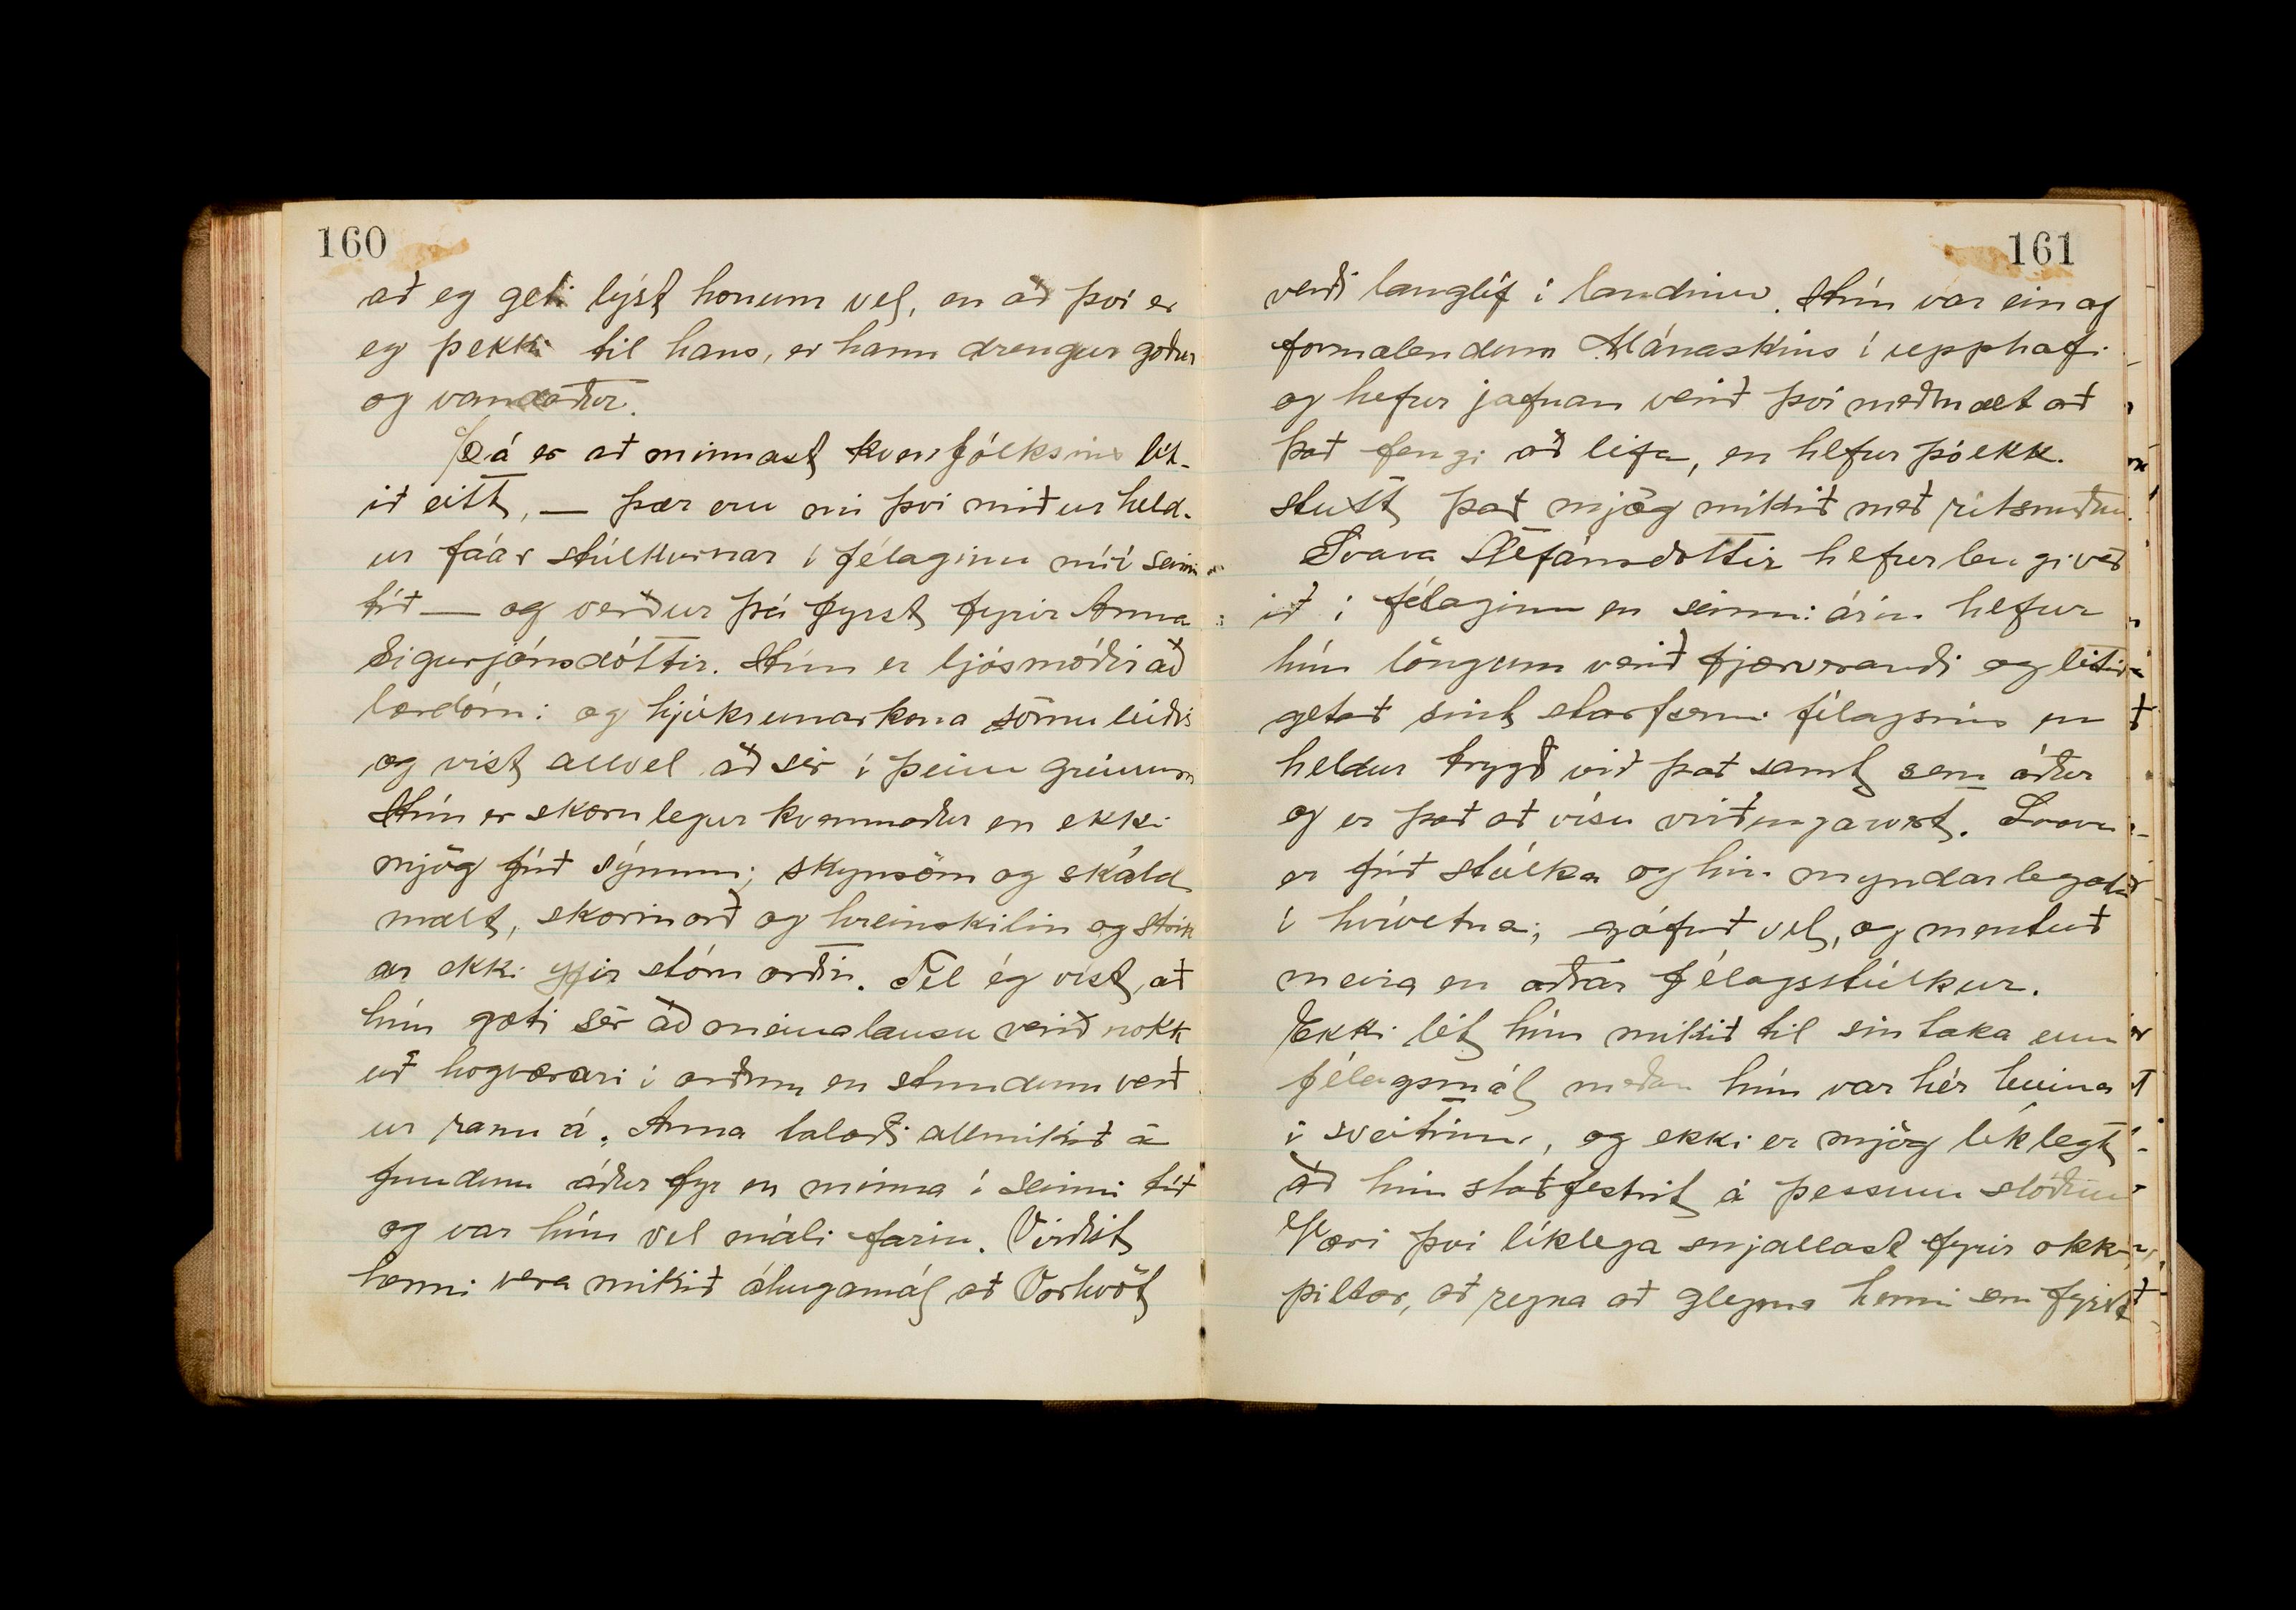 160
að eg geti lýst honum vel, en að því er
eg þekki til hans, er hann drengur góður
og vandaður.
Þá er að minnast kvenfólksins lít-
ið eitt, — þær eru nú því miður held-
ur fáar stúlkurnar í félaginu nú í seinni
tíð — og verður þá fyrst fyrir Anna
Sigurjónsdóttir. Hún er ljósmóðir að
lærdómi og hjúkrunarkona sömuleiðis
og vist allvel að sér í þeim greinum
Hún er skörulegur kvennmaður en ekki
mjög fríð sýnum; skynsöm og skáld
mælt, skorinorð og hreinskilin og stik
ar ekki yfir stóru orðin. Tel ég vist, að
hún gæti sér að meinalausu verið nokk
uð hogværari í orðum en stundum verð
ur raun á. Anna talaði allmikið á
fundum áður fyr en minna í seinni tíð
og var hún vel máli farin. Virðist
henni vera mikið áhugamál að Vorhvöt
161
verði langlíf í landinu. Hún var ein af
formælendum Mánaskins í upphafi
og hefur jafnan verið því meðmælt að
það fengi að lifa, en hefur þó ekk.
stutt það mjög mikið með ritsmíðum.
Svava Stefánsdóttir hefur lengi ver
ið í félaginu en seinni árin hefur
hún löngum verið fjærverandi og lítið
getað sint starfsemi félagsins en
heldur trygð við það samt sem áður
og er það að vísu virðingarvert. Svava
er fríð stúlka og hin myndarlegasta
í hvívetna; gáfuð vel, og mentuð
meira en aðrar félagsstúlkur.
Ekki lét hún mikið til sín taka um
félagsmál meðan hún var hér heima
í sveitinni, og ekki er mjög líklegt
að hún staðfestist á þessum slóðum
Væri því líklega snjallast fyrir okkur
piltar, að reyna að gleyma henni sem fyrst